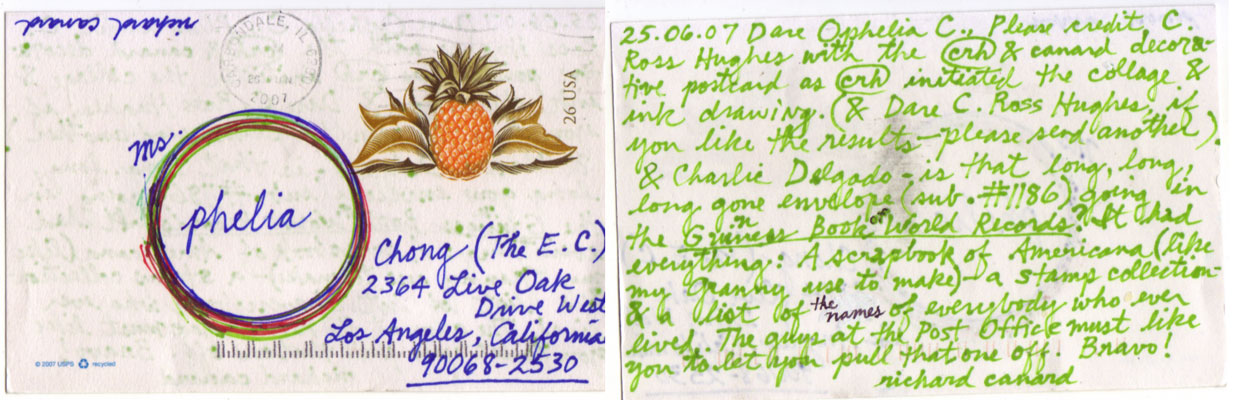 richard canard
CARBONDALE, IL
2007
26 USA
Ms.
phelia
Chong (The E.C.)
2364 Live Oak
Drive West
Los Angeles, California
90068-2530
© 2007 USPS recycled
25.06.07 Dare Ophelia C., Please credit, C.
Ross Hughes with the crh & canard decora-
tive postcard as crh initiated the collage &
ink drawing. (& Dare C. Ross Hughes, if
you like the results—please send another).
& Charlie Delgado - is that long, long,
long gone envelope (sub. #1186) going in
the Guinness Book of World Records? It had
everything: A scrapbook of Americana (like
my Granny use to make) - a stamps collection
& a list of the names of everybody who ever
lived. The guys at the Post Office must like
you to let you pull that one off. Bravo!
richard canard